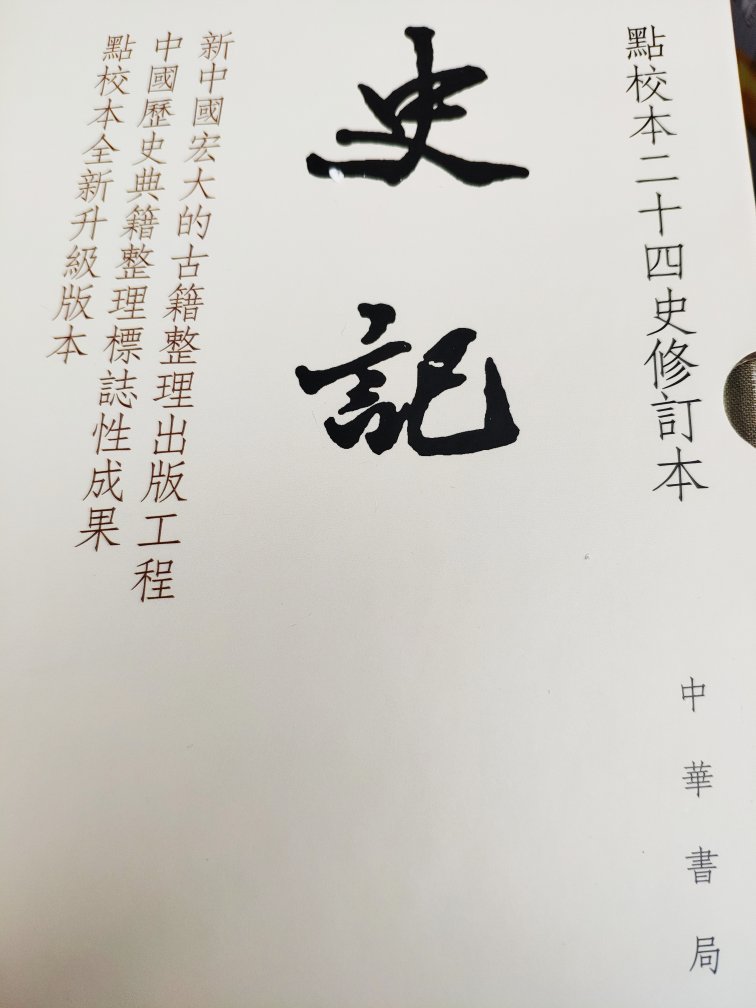 點校本二十四史修訂本
史記
新中國宏大的古籍整理出版工程
中國歷史典籍整理標誌性成果
點校本全新升級版本
中華書局